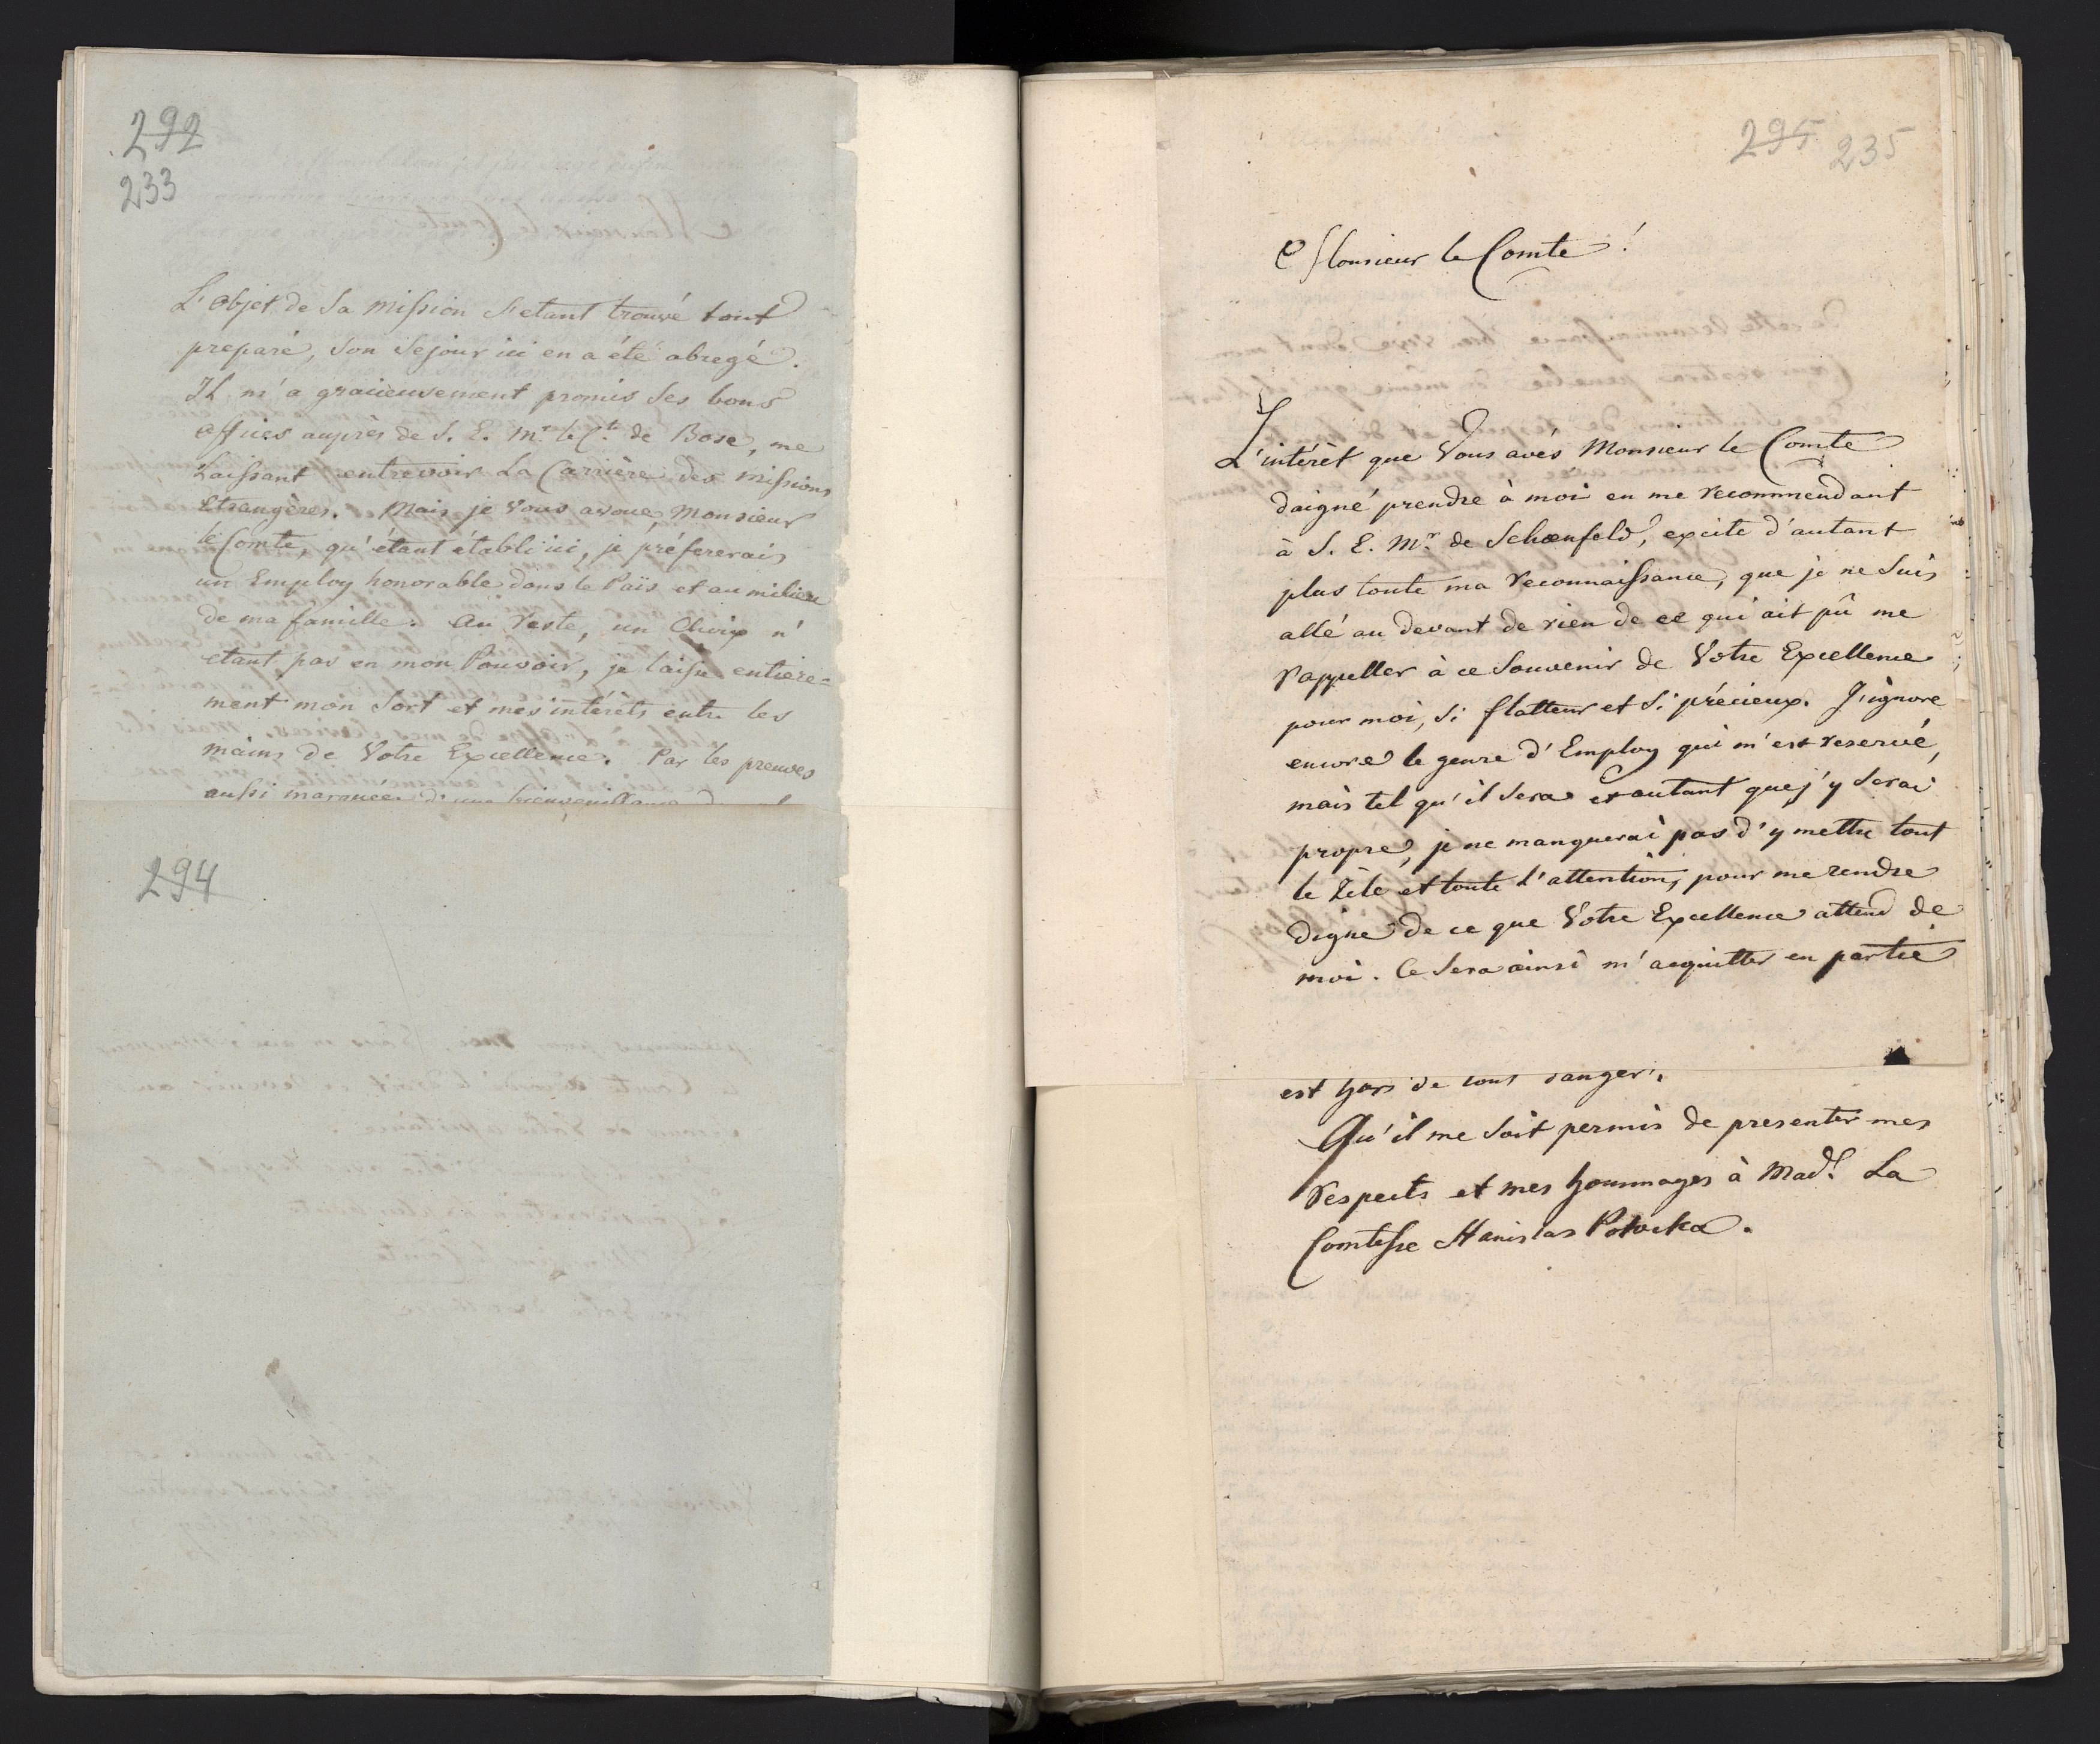 292
233
L'objet de Sa mission s'etant trouvé tout
preparé, Son Sejour ici en a été abregé.
Il m'a gracieusement promis Ses bons
offices auprès de S. E. Mr. le Ct. de Bose, me
Laissant entrevoir La Carrière des missions
Etrangères. Mais je Vous avoue, Monsieur
le Comte, qu'étant établi ici, je préfererais
un Employ honorable dans le Païs et au milieu
de ma famille. Au reste, un Choix n'
etant pas en mon Pouvoir, je laisse entiere=
ment mon Sort et mes intérèts entre les
mains de Votre Excellence. Par les preuves
aussi marquées d'une bienveuillance
294
295 235
Monsieur le Comte!
L'intérèt que Vous avés Monsieur le Comte
daigné prendre à moi en me recommendant
à S. E. Mr. de Schœnfeld, excite d'autant
plus toute ma reconnaissance, que je ne Suis
allé au devant de rien de ce qui ait pû me
rappeller à ce Souvenir de Votre Excellence
pour moi, Si flatteur et Si précieux. J'ignore
encore le genre d'Employ qui m'est reservé,
mais tel qu'il Sera et autant que j'y Serai
propre, je ne manquerai pas d'y mettre tout
le Zèle et toute l'attention, pour me rendre
digne de ce que Votre Excellence attend de
moi. Ce Sera ainsi m'acquitter en partie
est hors de tout danger.
Qu'il me Soit permis de presenter mes
respects et mes hommages à Made. La
Comtesse Stanislas Potocka.